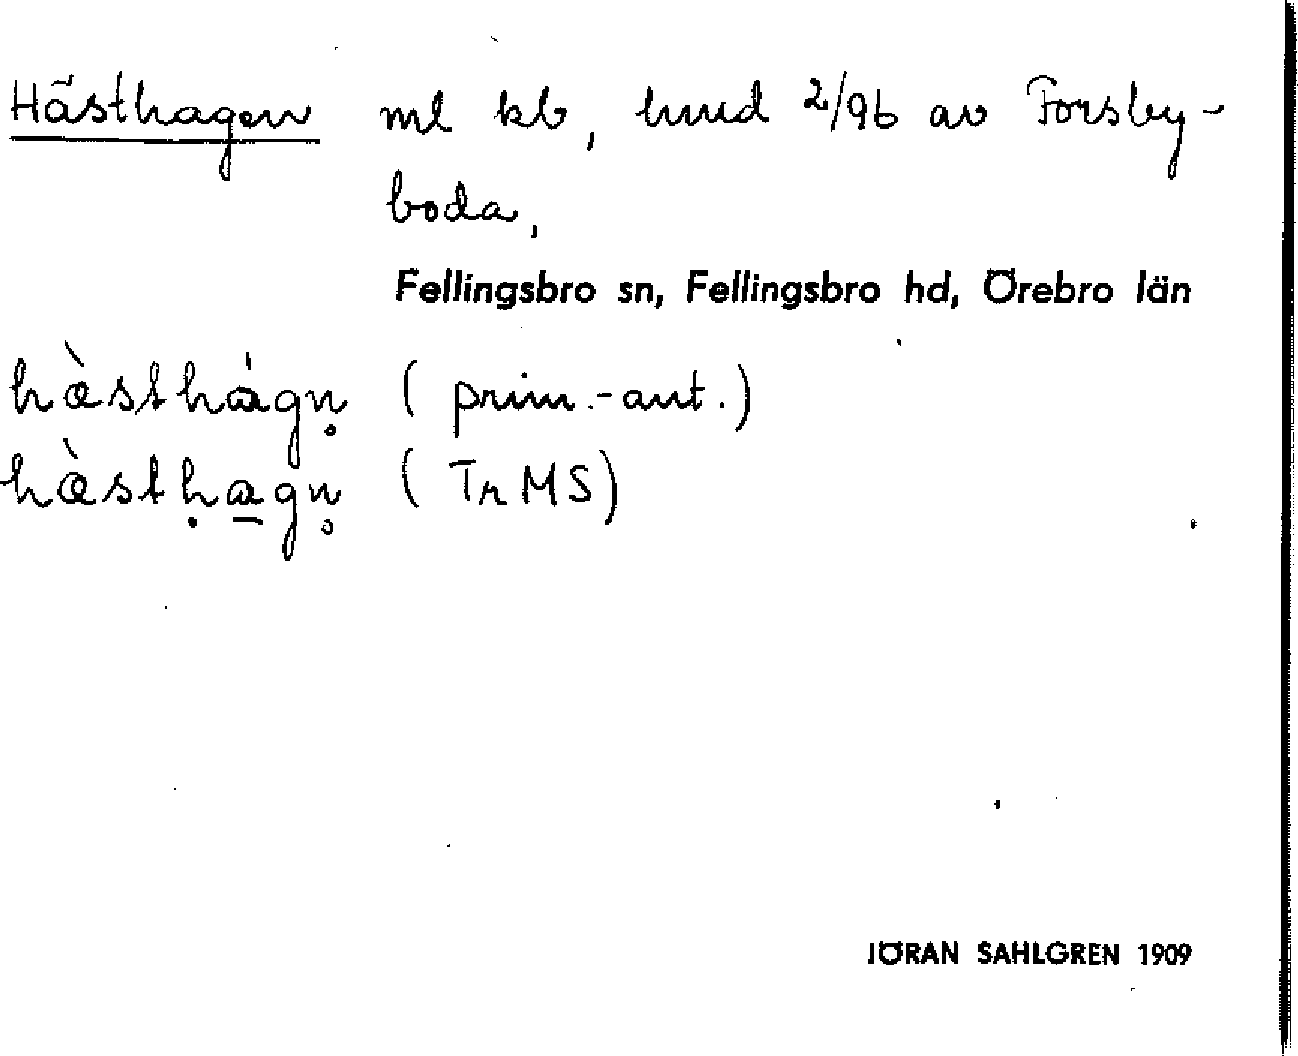 Hästhagen ml kb, hmd 2/96 av Forsby-
boda,
Fellingsbro sn, Fellingsbro hd, Örebro län
hàsthágn̥ ( prim.-ant.)
hàstḥa̲gn̥ ( Tr MS)
JÖRAN SAHLGREN 1909